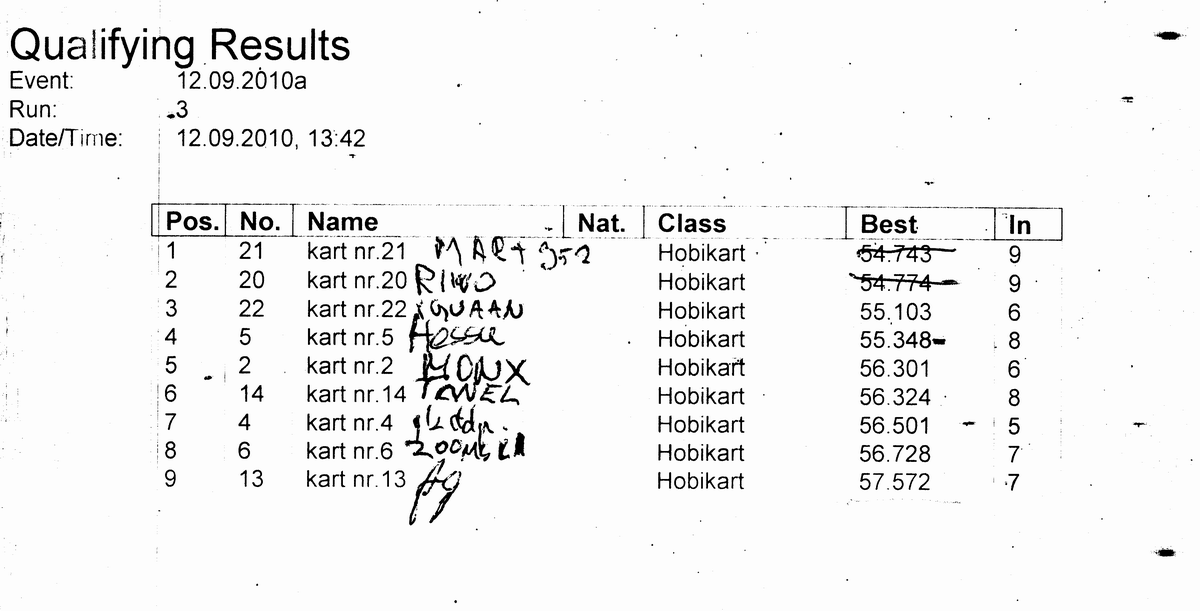 Qualifying Results
Event: 12.09.2010a
Run: 3
Date/Time: 12.09.2010, 13:42
Pos. No. Name Nat. Class Best In
1 21 kart nr.21 MART 352 Hobikart 54.743 9
2 20 kart nr.20 Hobikart 54.774 9
3 22 kart nr.22 Hobikart 55.103 6
4 5 kart nr.5 Hessu Hobikart 55.348 8
5 2 kart nr.2 MONX Hobikart 56.301 6
6 14 kart nr.14 Hobikart 56.324 8
7 4 kart nr.4 Hobikart 56.501 5
8 6 kart nr.6 Hobikart 56.728 7
9 13 kart nr.13 Hobikart 57.572 7